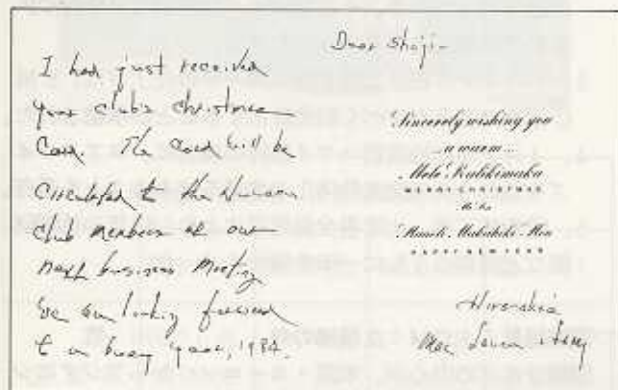 Dear Shoji-
I had just received
your club's christmas
Card. The Card will be
Circulated to the
club members at our
next business meeting
We are looking forward
t a busy year, 1984.
Sincerely wishing you
a warm...
Mele Kalikimaka
MERRY CHRISTMAS
Hauoli Makahiki Hou
HAPPY NEW YEAR